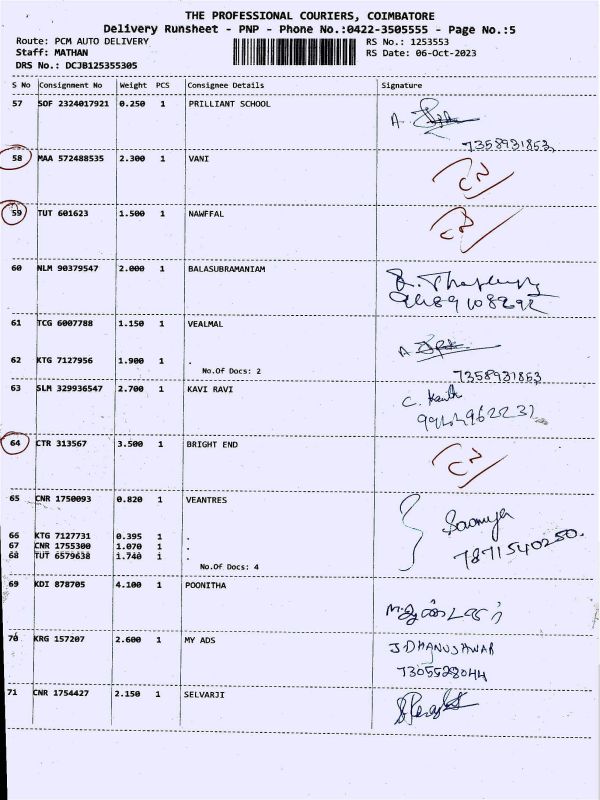 THE PROFESSIONAL COURIERS, COIMBATORE
Delivery Runsheet - PNP - Phone No.:0422-3505555 - Page No.:5
Route: PCM AUTO DELIVERY RS No.: 1253553
Staff: MATHAN RS Date: 06-Oct-2023
DRS No.: DCJB125355305
S No Consignment No Weight PCS Consignee Details Signature
57 SOF 2324017921 0.250 1 PRILLIANT SCHOOL
A.
7358931853
58 MAA 572488535 2.300 1 VANI
59 TUT 601623 1.500 1 NAWFFAL
60 NLM 90379547 2.000 1 BALASUBRAMANIAM
61 TCG 6007788 1.150 1 VEALMAL
A
62 KTG 7127956 1.900 1 .
No.Of Docs: 2
7358931853
63 SLM 329936547 2.700 1 KAVI RAVI
64 CTR 313567 3.500 1 BRIGHT END
65 CNR 1750093 0.820 1 VEANTRES
Sowmya
66 KTG 7127731 0.395 1 .
67 CNR 1755300 1.070 1 .
68 TUT 6579638 1.740 1 .
7871540250.
No.Of Docs: 4
69 KDI 878705 4.100 1 POONITHA
70 KRG 157207 2.600 1 MY ADS
J DHANUSHWAR
7305528044
71 CNR 1754427 2.150 1 SELVARJI